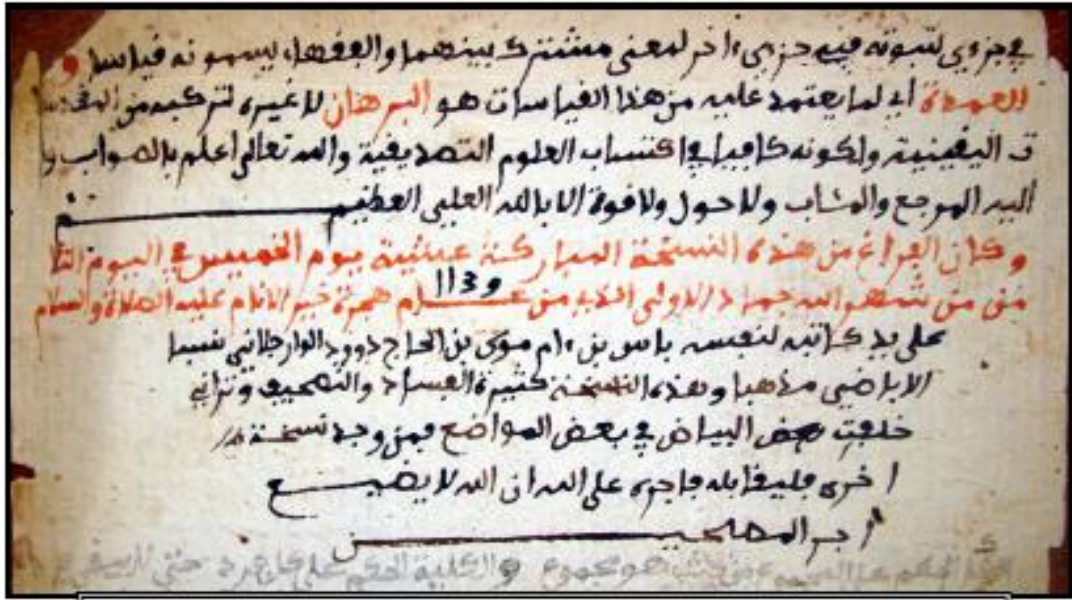 في جزءي لثبوته في جزءي ءاخر لمعنى مشترك بينهما والفقهاء يسمونه قياسا و
العمدة اي لما يعتمد عليه من هذا القياسات هو البرهان لا غيره لتركبه من المقدما
ت اليقينية ولكونه كافيا في اكتساب العلوم التصديقية والله تعالى اعلم بالصواب و
اليه المرجع والمئاب ولا حول ولا قوة الا بالله العلي العظيم
وكان الفراغ من هذه النسخة المباركة عشية يوم الخميس في اليوم الثا
من من شهر الله جماد الاولى الذي من عام و113 هجرة خير الانام عليه الصلاة والسلام
على يد كاتبه لنفسه بن موسى بن الحاج دوود الوارجلاني نسبا
الاباضي مذهبا وهذه النسخة كثيرة الفساد والتصحيف وتراني
خلفت بعض البياض في بعض المواضع فمن وجد نسخة
اخرى فليقابله فاجره على الله ان الله لا يضيع
اجر المصلحين
الحكم على هو مجموع والكلية الحكم على كل فرد حتى